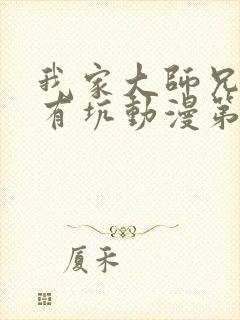 我家大師兄
有坑動漫第
厦禾